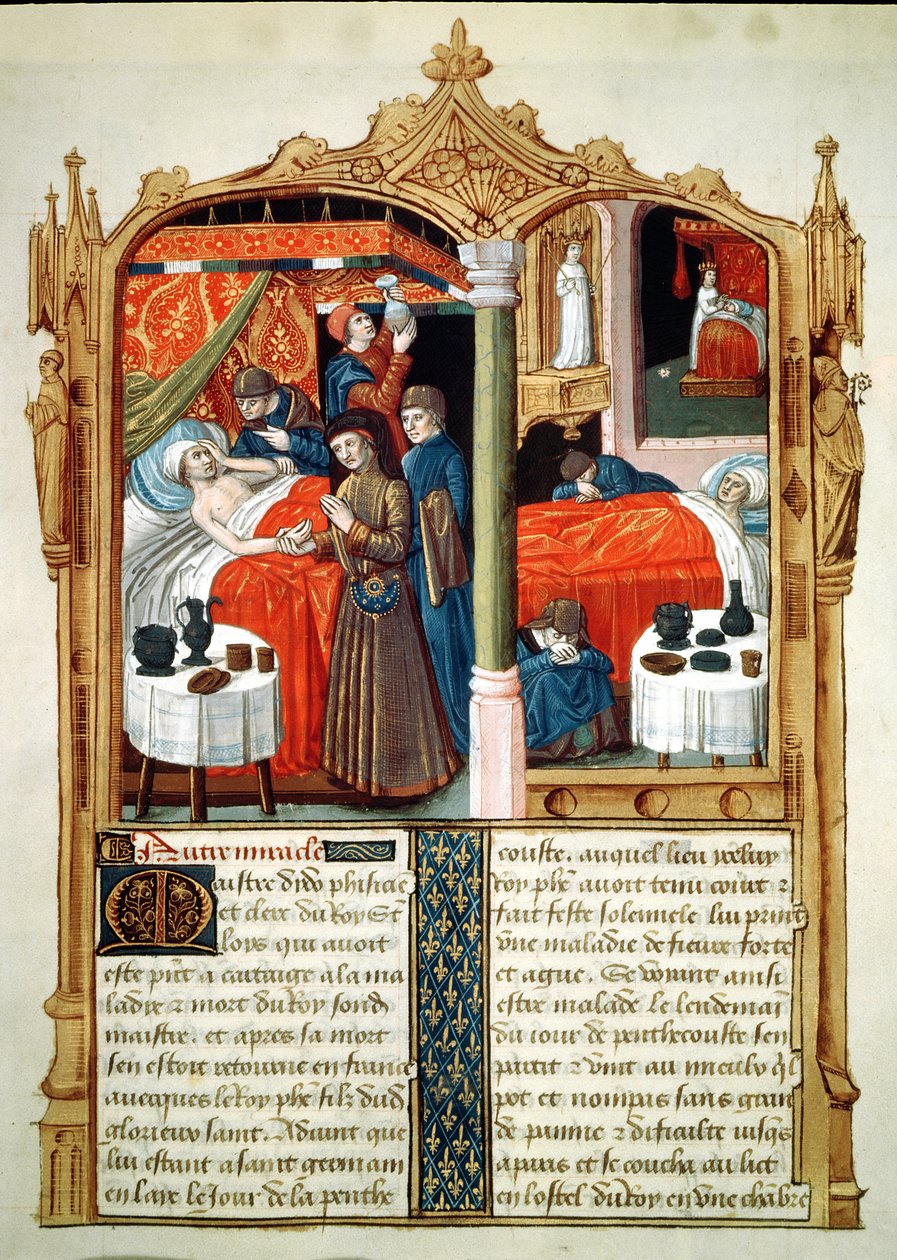 Autre miracle
Maistre dudo phisicie
et clerc du Roy St
loys qui auoit
este pñt a cartaige a la ma
ladie ⁊ mort du Roy sond
maistre. et apres sa mort
sen estoit retourne en france
auecques le Roy phe filz dud
glorieux saint. Aduint que
lui estant a saint germain
en laye le Jour de la penthe
couste. auquel lieu icelluy
Roy phe auoit tenu court ⁊
fait feste solennele lui print
vne maladie de fieure forte
et ague. Se voiant ainsi
estre malade le lendemai
du iour de penthecouste sen
partit ⁊ vint au mieulx ql
pot et non pas sans gran
de painne ⁊ dificulte iusqs
a paris et se coucha au lict
en lostel du Roy en vne chãbre